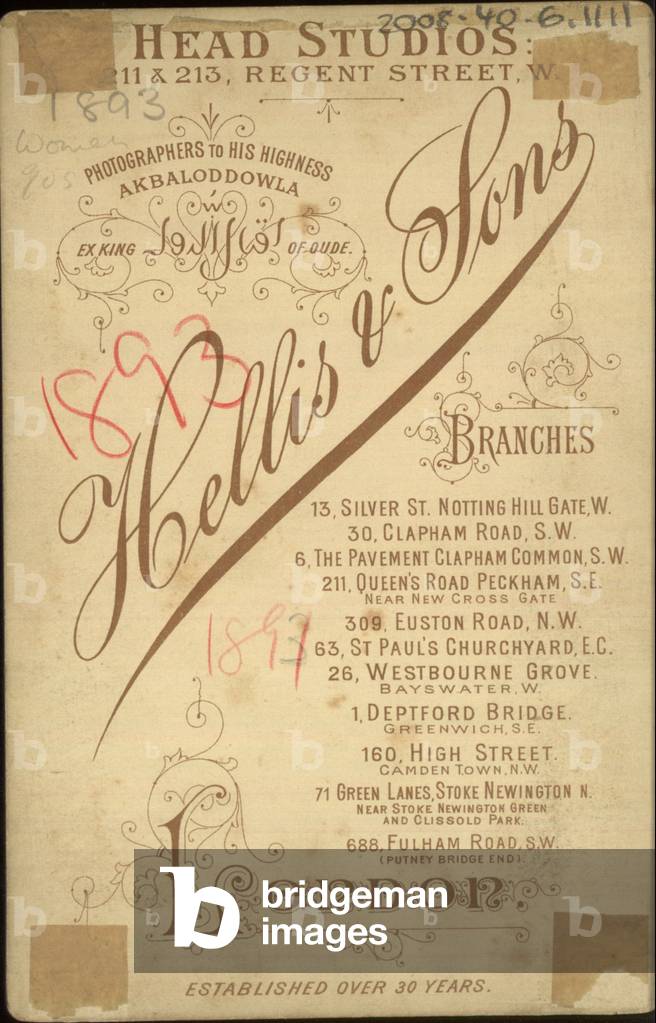 2008-40-6.1111
HEAD STUDIOS:
211 & 213, REGENT STREET, W.
1893
Women
90s
PHOTOGRAPHERS TO HIS HIGHNESS
AKBALODDOWLA
EX KING
OF OUDE.
Hellis & Sons
1893
BRANCHES
13, SILVER ST. NOTTING HILL GATE, W.
30, CLAPHAM ROAD, S.W.
6, THE PAVEMENT CLAPHAM COMMON, S.W.
211, QUEEN'S ROAD PECKHAM, S.E.
NEAR NEW CROSS GATE
309, EUSTON ROAD, N.W.
1893
63, ST PAUL'S CHURCHYARD, E.C.
26, WESTBOURNE GROVE.
BAYSWATER, W.
1, DEPTFORD BRIDGE.
GREENWICH, S.E.
160, HIGH STREET.
CAMDEN TOWN, N.W.
71 GREEN LANES, STOKE NEWINGTON N.
NEAR STOKE NEWINGTON GREEN
AND CLISSOLD PARK.
688, FULHAM ROAD, S.W.
(PUTNEY BRIDGE END).
LONDON.
b bridgeman
images
ESTABLISHED OVER 30 YEARS.